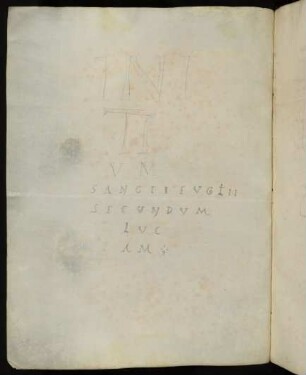 INI
TI
VM
SANCTI EVGLII
SECUNDUM
LUC
AM;